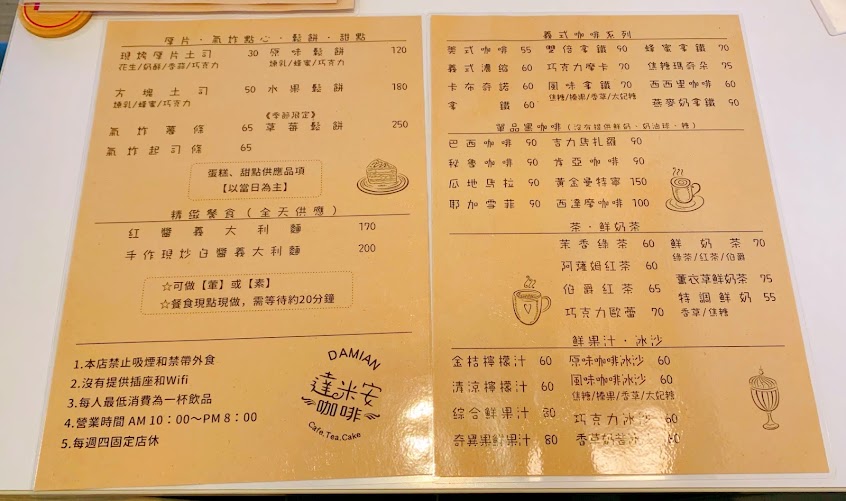 厚片．氣炸點心．鬆餅．甜點
現烤厚片土司 30 原味鬆餅 120
花生/奶酥/香蒜/巧克力 煉乳/蜂蜜/巧克力
方塊土司 50 水果鬆餅 180
煉乳/蜂蜜/巧克力
《季節限定》
氣炸薯條 65 草莓鬆餅 250
氣炸起司條 65
蛋糕、甜點供應品項
【以當日為主】
精緻餐食(全天供應)
紅醬義大利麵 170
手作現炒白醬義大利麵 200
☆可做【葷】或【素】
☆餐食現點現做，需等待約20分鐘
1.本店禁止吸煙和禁帶外食
2.沒有提供插座和Wifi
3.每人最低消費為一杯飲品
4.營業時間 AM 10：00～PM 8：00
5.每週四固定店休
DAMIAN
達米安
咖啡
Cafe.Tea.Cake
義式咖啡系列
美式咖啡 55 雙倍拿鐵 90 蜂蜜拿鐵 70
義式濃縮 60 巧克力摩卡 70 焦糖瑪奇朵 75
卡布奇諾 60 風味拿鐵 70 西西里咖啡 70
焦糖/榛果/香草/太妃糖
拿鐵 60 燕麥奶拿鐵 90
單品黑咖啡(沒有提供鮮奶、奶油球、糖)
巴西咖啡 90 吉力馬扎羅 90
秘魯咖啡 90 肯亞咖啡 90
瓜地馬拉 90 黃金曼特寧 150
耶加雪菲 90 西達摩咖啡 100
茶．鮮奶茶
茉香綠茶 60 鮮奶茶 70
綠茶/紅茶/伯爵
阿薩姆紅茶 60
薰衣草鮮奶茶 75
伯爵紅茶 65
特調鮮奶 55
巧克力歐蕾 70 香草/焦糖
鮮果汁．冰沙
金桔檸檬汁 60 原味咖啡冰沙 60
清涼檸檬汁 60 風味咖啡冰沙 60
焦糖/榛果/香草/太妃糖
綜合鮮果汁 80 巧克力冰沙 60
奇異果鮮果汁 80 香草奶茶冰